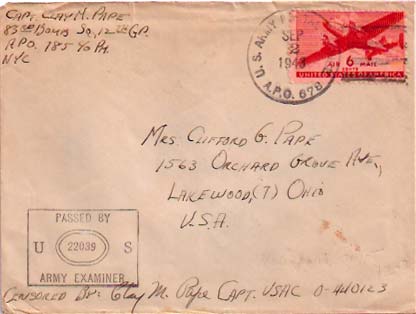 CAPT. CLAY M. PAPE
83RD BOMB SQ, 12TH GP.
A.P.O. 185 % P.M.
NYC
U.S. ARMY
SEP
22
1943
A.P.O. 678
AIR 6 MAIL
CENTS
UNITED STATES OF AMERICA
MRS. CLIFFORD G. PAPE
1563 ORCHARD GROVE AVE.,
LAKEWOOD, (7) OHIO
U.S.A.
PASSED BY
U 22039 S
ARMY EXAMINER
CENSORED BY: Clay M. Pape CAPT. USAC O-440123